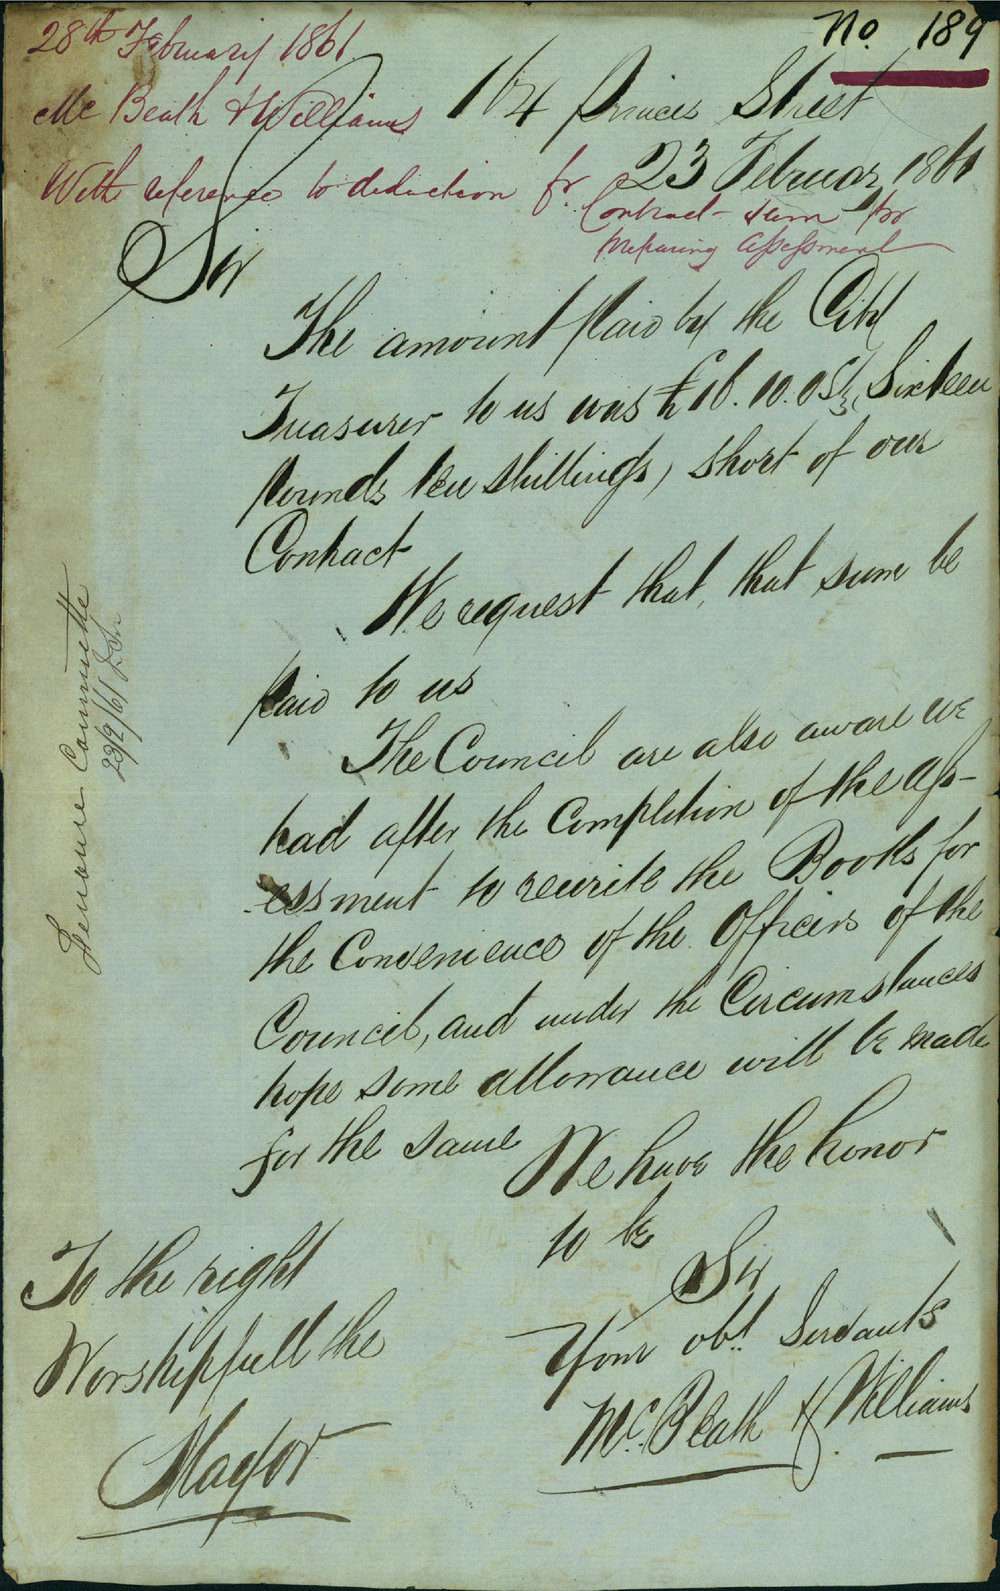 No. 189
28th February 1861
Mc Beath & Williams
With reference to deduction fr.
Contract-sum for
preparing Assessment
164 Princes Street
23 Februar 1861
Sir
The amount paid by the City
Treasurer to us was £16.10.0 Sixteen
pounds ten shillings) short of our
Contract
We request that, that sum be
paid to us
The Council are also aware we
had after the Completion of the Ass-
essment to rewrite the Books for
the Convenience of the Officers of the
Council, and under the Circumstances
hope some allowance will be made
for the same
We have the honor
to be
Sir
Your obt. Servants
Mc. Beath & Williams
To the right
Worshipfull the
Mayor
Committee
23/2/61